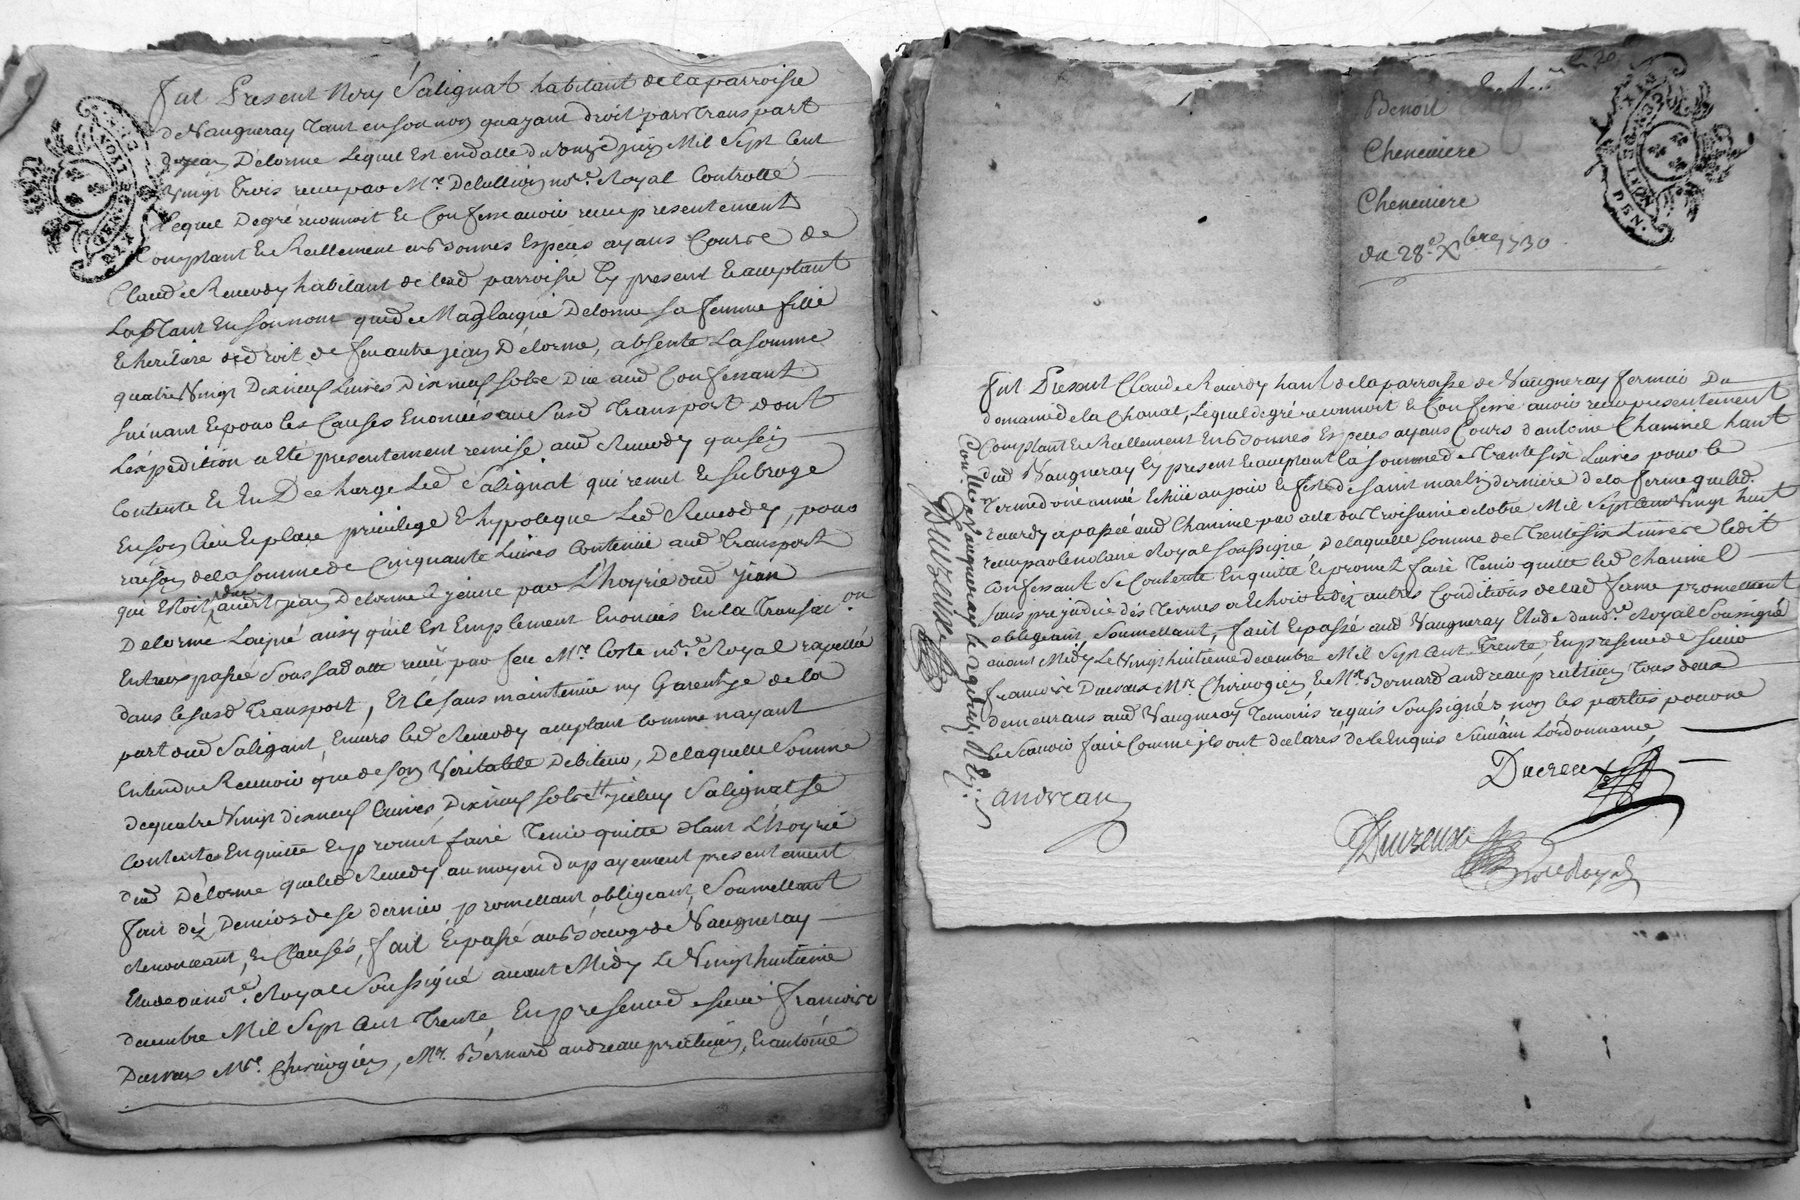 Fut Present Nery Salignat habitant de la parroisse
de Vaugneray tant en son nom quayant droit par transport
de jean Delorme Lequel Est en datte du juin Mil Sept Cent
Vingt trois receu par Mre. Delullion nore. Royal Controllé
Lequel de gré reconnoit Et Confesse avoir receu presentement
Comptant Et Reellement en bonnes Especes ayans Cours de
Claude Reverdy habitant de lad parroisse Ey present Et acceptant
tant En son nom que de Delorme sa femme fille
Et heritiere de droit de feu autre jean Delorme, absente La somme
quatre Vingt Dixneuf Livres Dixneuf sols Due aud Confessant
suivant Et pour les Causes Enoncées au Susd transport dont
L'expedition a Eté presentement remise aud Reverdy qui s'en
Contente Et En Decharge Led Salignat qui remet Et subroge
En son lieu Et place privilege Et hypoteque Led Reverdy, pour
raison de la somme de Cinquante Livres Contenüe aud transport
qui Etoit düe audit jean Delorme Le jeune par L'hoyrie dud jean
Delorme Layné ainsy qu'il Est Emplement Enoncés En la transacon
Entreux passée Sous sa datte receü par feu Mre. Coste nore. Royal rapellé
dans le susd transport, Et Ce sans maintenüe ny Garentye de la
part dud Saligant, Envers led Reverdy acceptant Comme nayant
Entendu Recevoir que de son Veritable Debiteur, De laquelle Somme
de quatre Vingt dixneuf Livres Dixneuf sols Salignat se
Contente En quitte Et promet faire tenir quitte tant L'hoyrie
dud Delorme que led Reverdy au moyen du payement presentement
fait dez Deniers de se dernier, promettant, obligeant, Soumettant
Renonceant, Et Clauses, fait Et passé au Bourg de Vaugneray
Etude du nore. Royal Soussigné avant Midy Le Vingt huitieme
decembre Mil Sept Cent trente, En presence de sieur francois
Ducreux Mre. Chirurgien, Mr. Bernard andreau praticien, Et antoine
Benoit
Cheneviere
Cheneviere
du 28e. Xbre 1730
Fut Present Claude Reverdy hant de la parroisse de Vaugneray fermier Du
domaine de la Chanal, Lequel de gré reconnoit Et Confesse avoir receu presentement
Comptant Et Reellement En Bonnes Especes ayans Cours d'antoine Chammel hant
dud Vaugneray Ey present Et acceptant la somme de Trente six Livres pour le
Terme d'une année Echüe au jour Et feste de saint martin derniere de la ferme que led.
reverdy a passée aud Chammel par acte du Troisieme octobre Mil Sept Cent Vingt huit
receu par le notaire Royal soussigné, De laquelle somme de Trente six Livres ledit
Confessant Se Contente En quitte Et promet faire Tenir quitte led Chammel
Sans prejudice des Termes a Echoir Et dez autres Conditions de lad ferme promettant
obligeant, Soumettant, fait Et passé aud Vaugneray Etude dud nore. Royal Soussigné
avant Midy Le Vingt huitieme decembre Mil Sept Cent Trente, En presence de sieur
francois Ducreux Mre. Chirurgien Et Mr. Bernard andreau praticien tous deux
demeurans aud Vaugneray Temoins requis Soussignés non les parties pour ne
le Scavoir faire Comme ils ont declarés de ce Enquis Suivant L'ordonnance
Ducreux
andreau
Dervieux
nore Royal